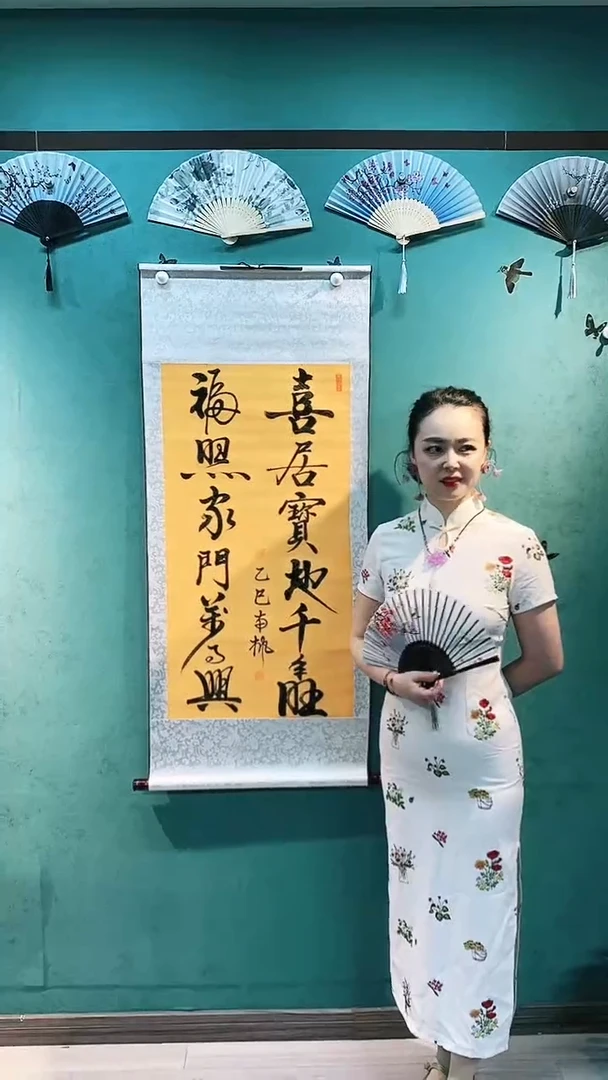 喜居寶地千年旺
福照家門萬事興
乙巳